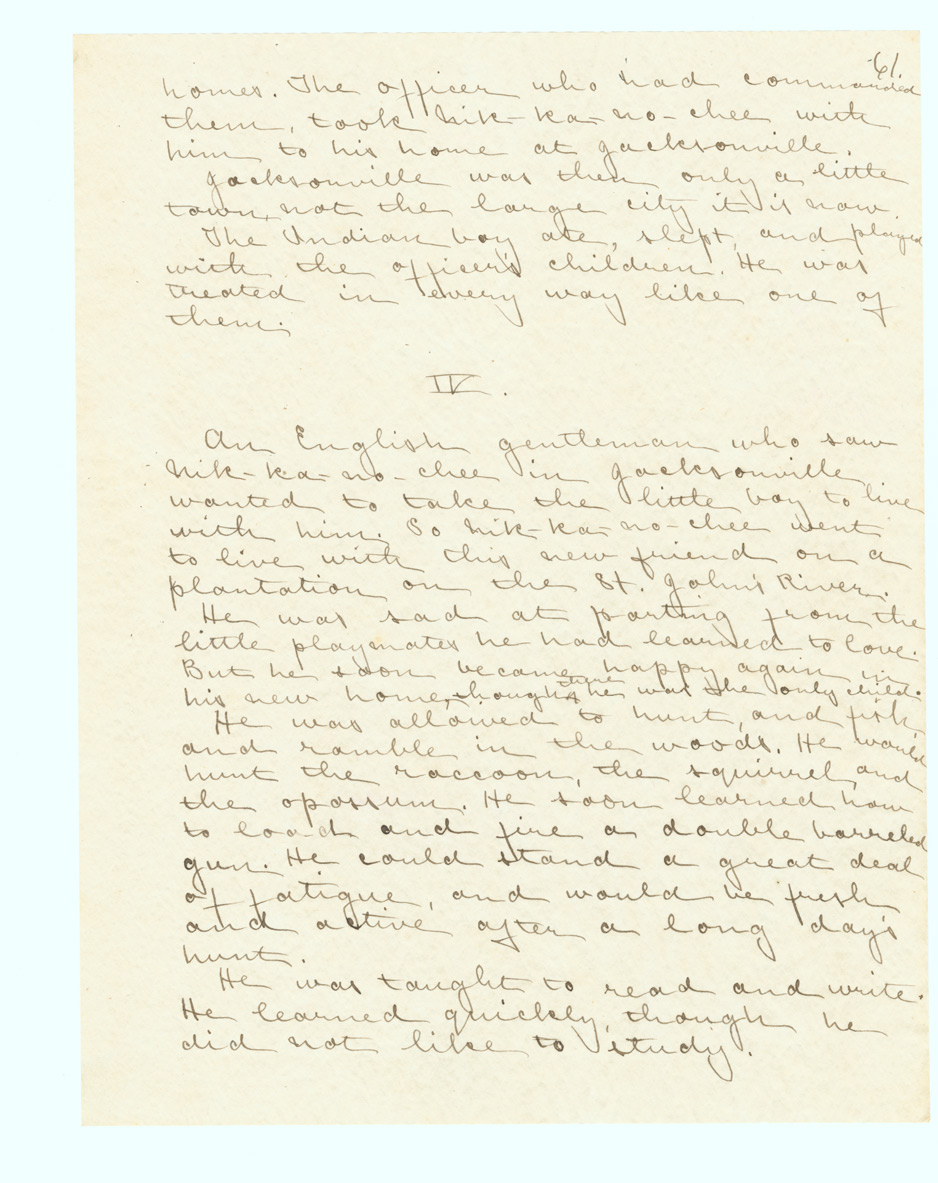 61.
homes. The officer who had commanded
them, took Nik-ka-no-chee with
him to his home at Jacksonville.
Jacksonville was then only a little
town, not the large city it is now.
The Indian boy ate, slept, and played
with the officer's children. He was
treated in every way like one of
them.
IV.
An English gentleman who saw
Nik-ka-no-chee in Jacksonville
wanted to take the little boy to live
with him. So Nik-ka-no-chee went
to live with this new friend on a
plantation on the St. John's River.
He was sad at parting from the
little playmates he had learned to love.
But he soon became happy again in
his new home, though there he was the only child.
He was allowed to hunt, and fish,
and ramble in the woods. He would
hunt the raccoon, the squirrel, and
the opossum. He soon learned how
to load and fire a double barreled
gun. He could stand a great deal
of fatigue, and would be fresh
and active after a long day's
hunt.
He was taught to read and write.
He learned quickly, though he
did not like to study.